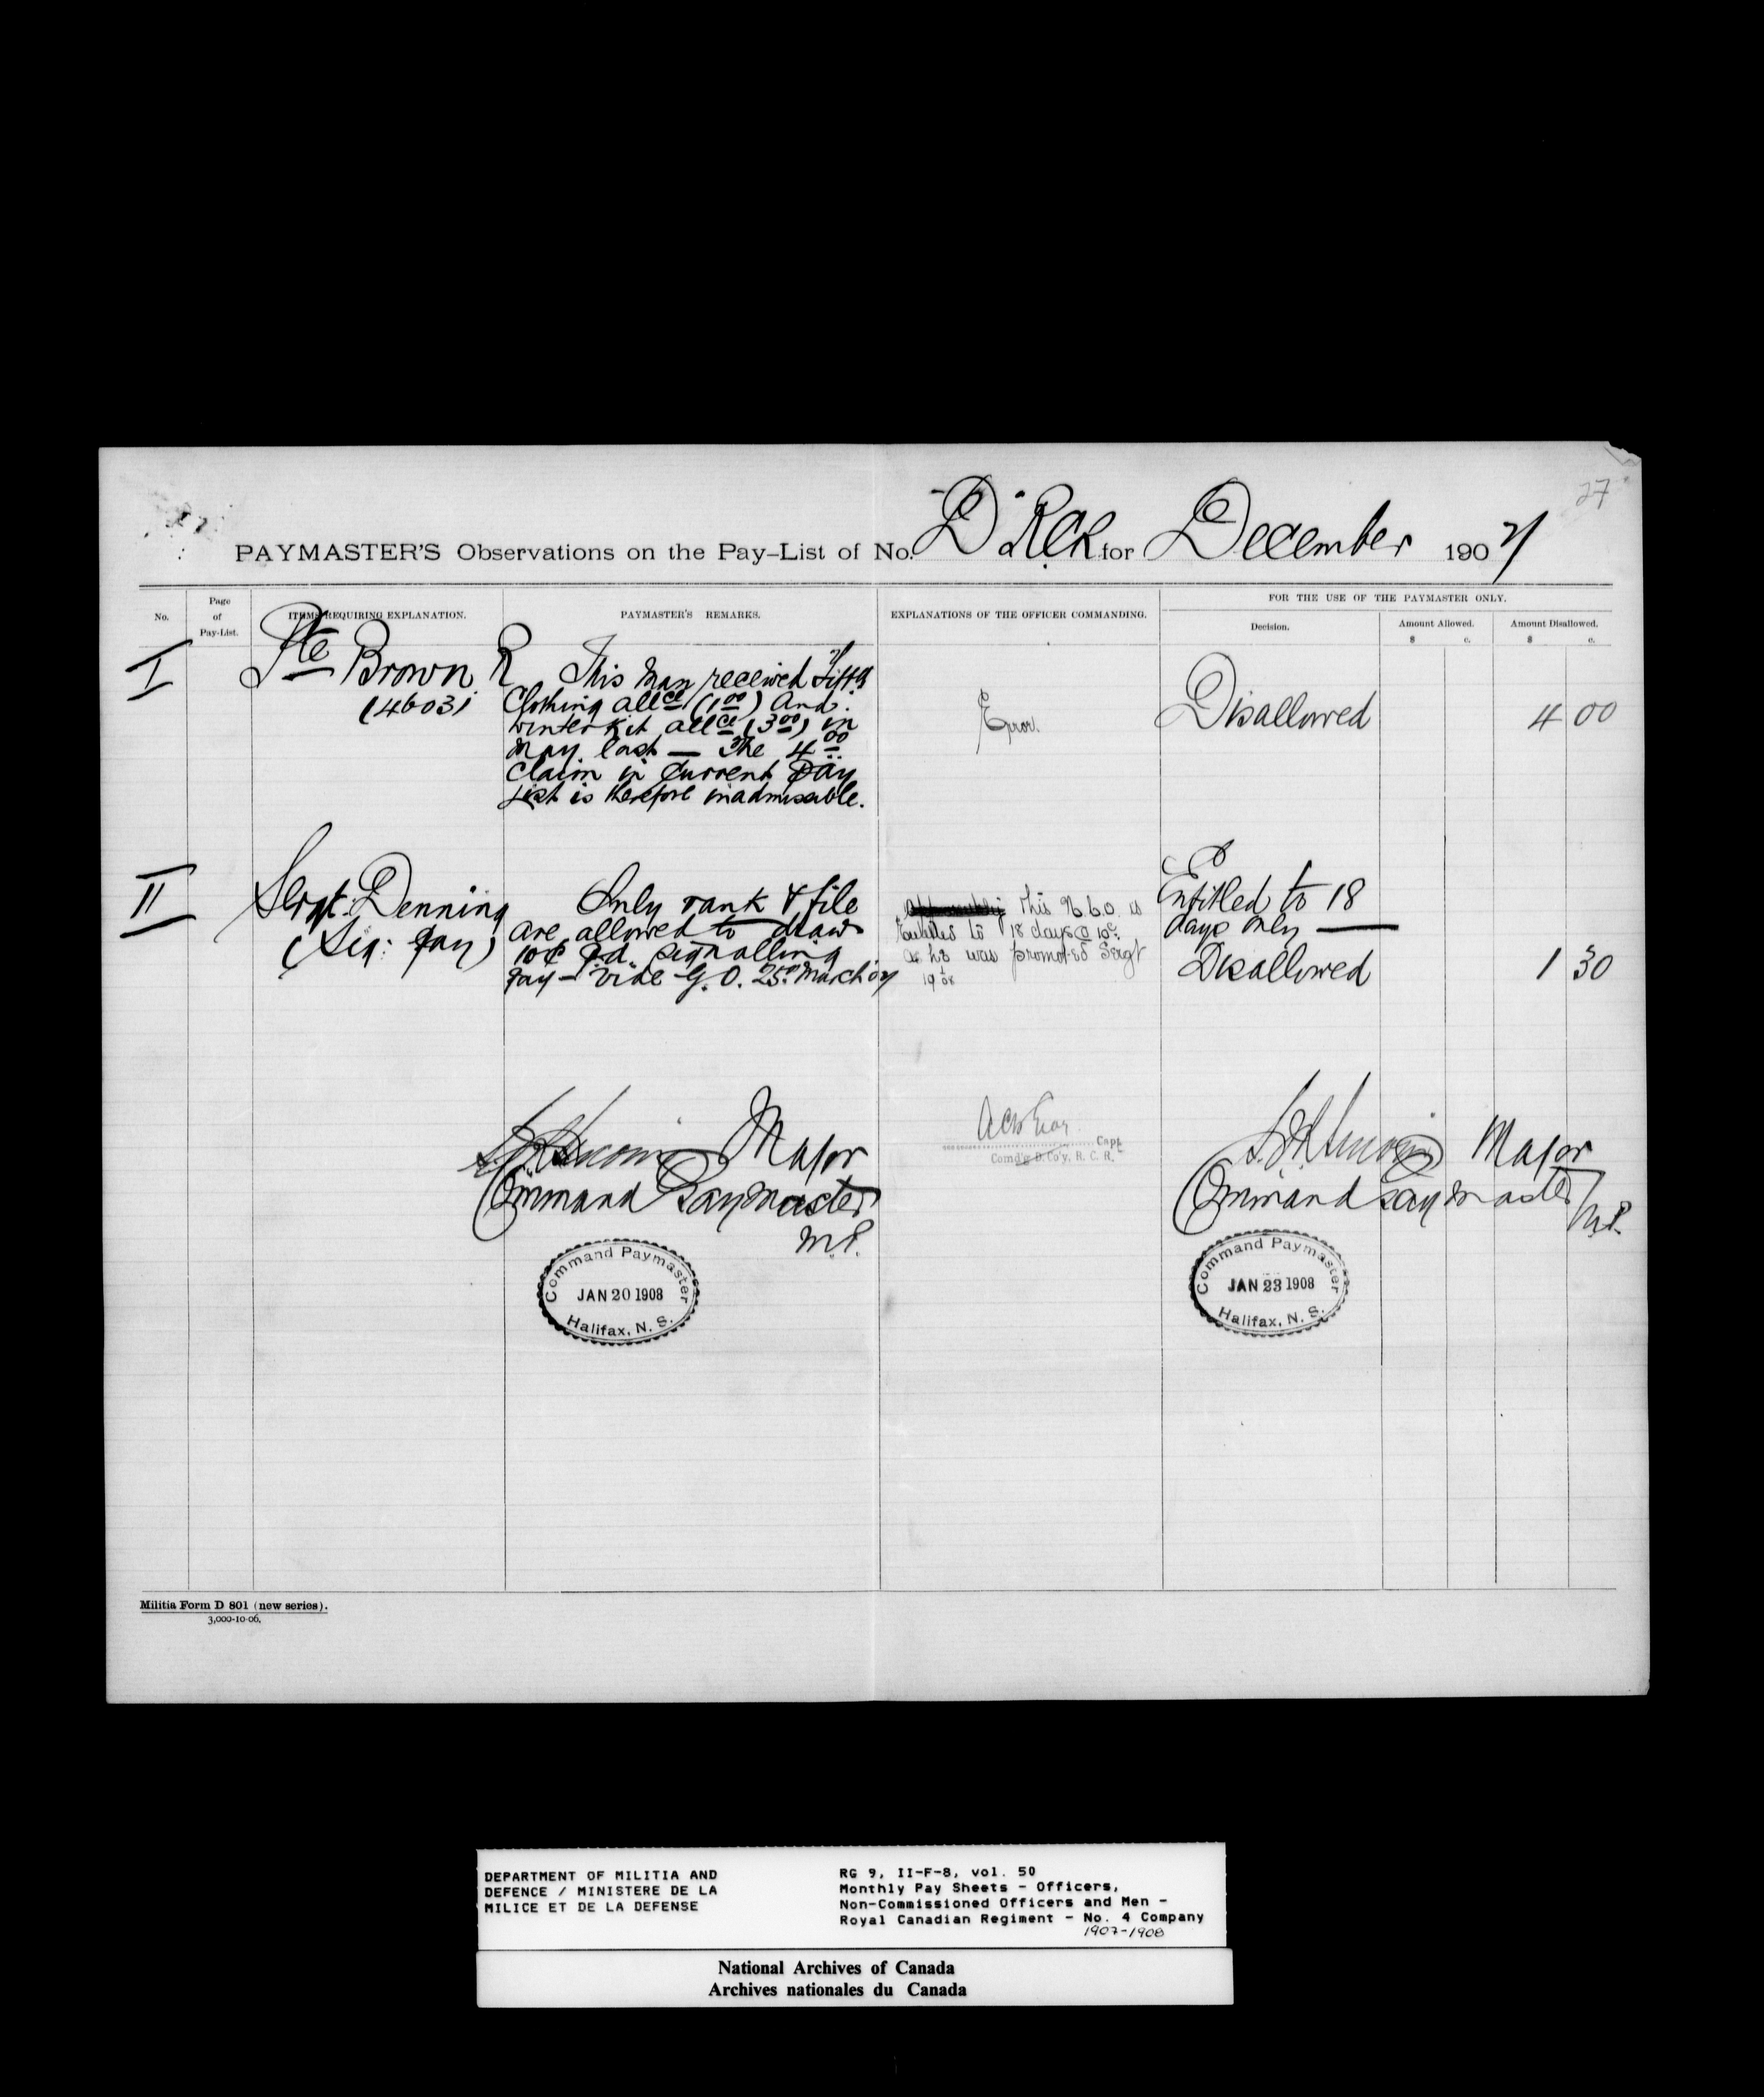 27
PAYMASTER'S Observations on the Pay-List of No. "D" R.C.R. for December 1907
No.
Page of Pay-List.
ITEMS REQUIRING EXPLANATION.
PAYMASTER'S REMARKS.
EXPLANATIONS OF THE OFFICER COMMANDING.
FOR THE USE OF THE PAYMASTER ONLY.
Decision.
Amount Allowed.
$ c.
Amount Disallowed.
$ c.
I
Pte Brown R
This man received
Clothing allce (1 00) and
winter kit allce (3 00) in
May last — The 4 00
claim in current Pay
List is therefore inadmissable.
Error.
Disallowed
4 00
II
Sergt. Denning
(Sig: pay)
Only rank & file
are allowed to draw
10¢ p.d. signalling
pay — vide G.O. 25 March 07
This N.C.O. is
Entitled to 18 days @ 10c.
as he was promoted Sergt
19
Entitled to 18
days only —
Disallowed
1 30
Major
Command Paymaster
M.P.
Capt
Comd'g D. Co'y, R. C. R.
Major
Command Paymaster
M.P.
Command Paymaster
JAN 20 1908
Halifax, N. S.
Command Paymaster
JAN 23 1908
Halifax, N. S.
Militia Form D 801 (new series).
3,000-10-06.
DEPARTMENT OF MILITIA AND
DEFENCE / MINISTERE DE LA
MILICE ET DE LA DEFENSE
RG 9, II-F-8, vol. 50
Monthly Pay Sheets - Officers,
Non-Commissioned Officers and Men -
Royal Canadian Regiment - No. 4 Company
1907-1908
National Archives of Canada
Archives nationales du Canada